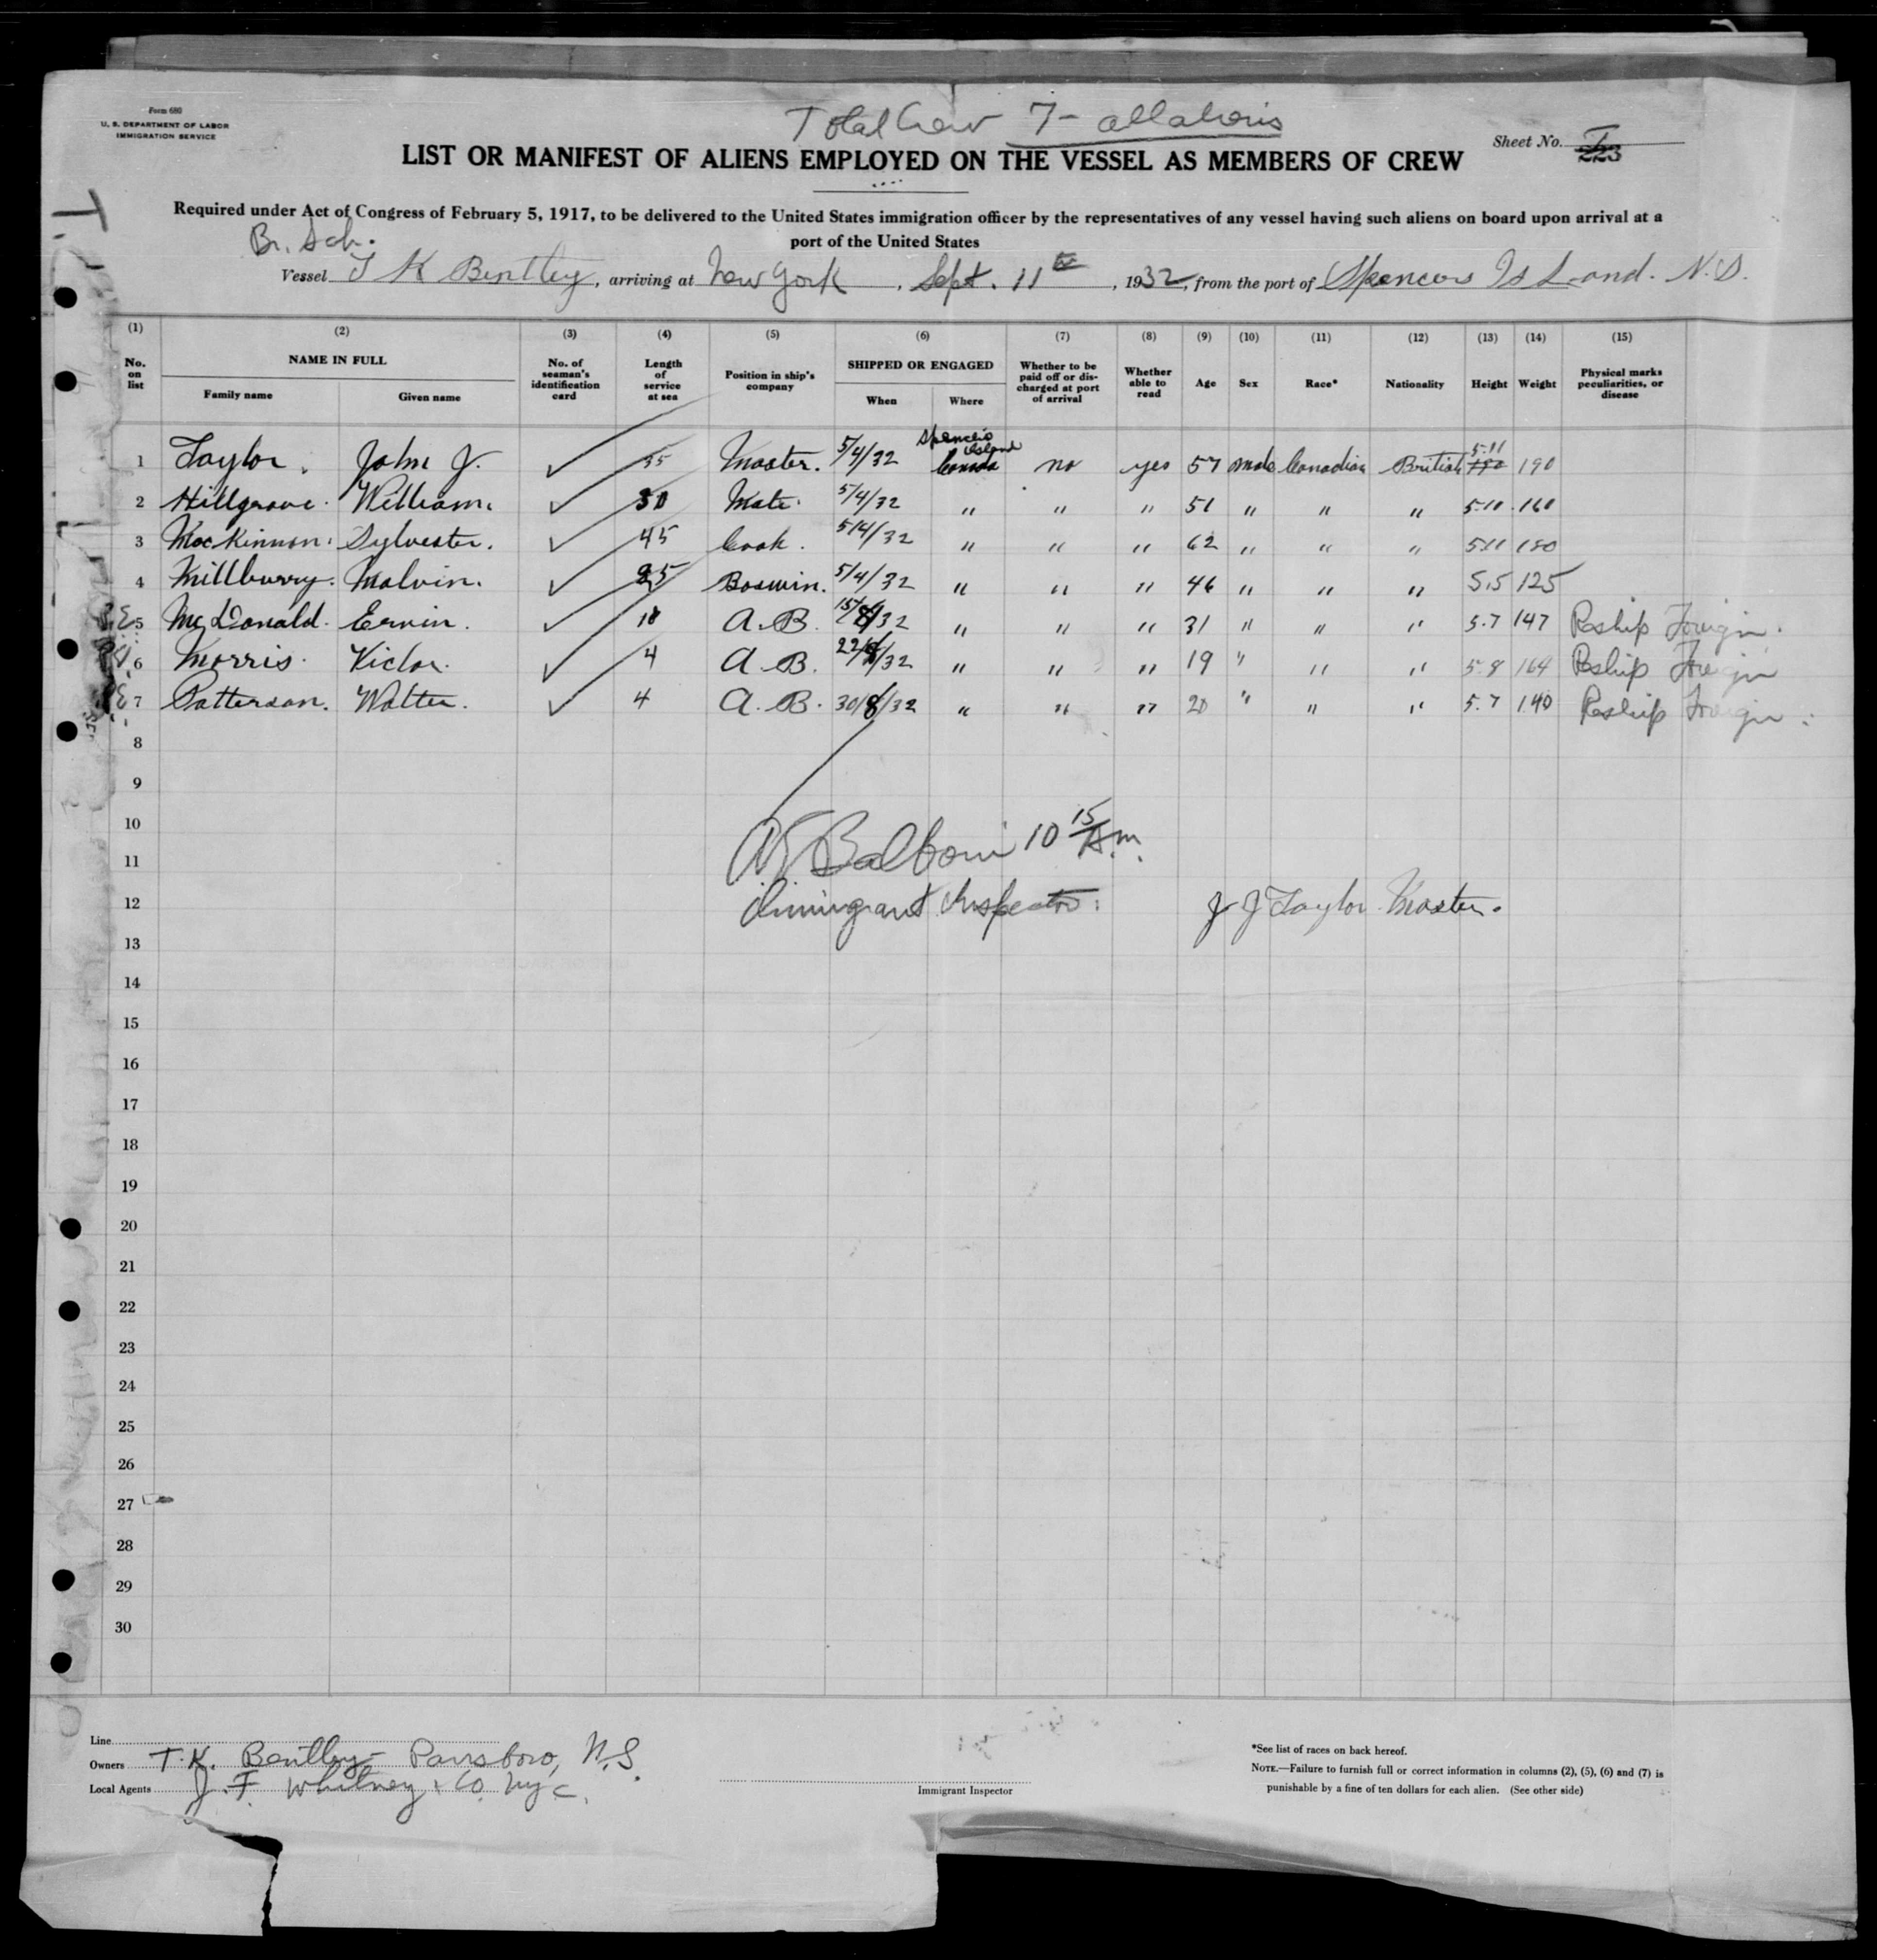 Form 680
U. S. DEPARTMENT OF LABOR
IMMIGRATION SERVICE
Total Crew 7 - all aliens
Sheet No. I
LIST OR MANIFEST OF ALIENS EMPLOYED ON THE VESSEL AS MEMBERS OF CREW
Required under Act of Congress of February 5, 1917, to be delivered to the United States immigration officer by the representatives of any vessel having such aliens on board upon arrival at a
port of the United States
Br. Sch.
Vessel T K Bentley, arriving at New York, Sept. 11th, 1932, from the port of Spencers Island. N.S.
(1) (2) (3) (4) (5) (6) (7) (8) (9) (10) (11) (12) (13) (14) (15)
No. on list NAME IN FULL Family name Given name No. of seaman's identification card Length of service at sea Position in ship's company SHIPPED OR ENGAGED When Where Whether to be paid off or discharged at port of arrival Whether able to read Age Sex Race* Nationality Height Weight Physical marks peculiarities, or disease
1 Taylor. John J. ✓ 35 Master. 5/4/32 Spencer's Island Canada no yes 57 male Canadian British 5-11 190
2 Hillgrove. William. ✓ 30 Mate. 5/4/32 " " " 51 " " " 5.10 160
3 MacKinnon. Sylvester. ✓ 45 Cook. 5/4/32 " " " 62 " " " 5.11 180
4 Millburry. Malvin. ✓ 25 Boswin. 5/4/32 " " " 46 " " " 5.5 125
5 McDonald. Ervin. ✓ 18 A.B. 15/8/32 " " " 31 " " " 5.7 147 Reship Foreign.
6 Morris. Victor. ✓ 4 A.B. 22/8/32 " " " 19 " " " 5.8 164 Reship Foreign
7 Patterson. Walter. ✓ 4 A.B. 30/8/32 " " " 20 " " " 5.7 140 Reship Foreign.
8
9
10
10 15/A.m.
11
12 Immigrant Inspector. J J Taylor Master.
13
14
15
16
17
18
19
20
21
22
23
24
25
26
27
28
29
30
Line
Owners T.K. Bentley - Parrsboro, N.S.
Local Agents J. F. Whitney & Co. NYC.
Immigrant Inspector
*See list of races on back hereof.
NOTE.—Failure to furnish full or correct information in columns (2), (5), (6) and (7) is
punishable by a fine of ten dollars for each alien. (See other side)